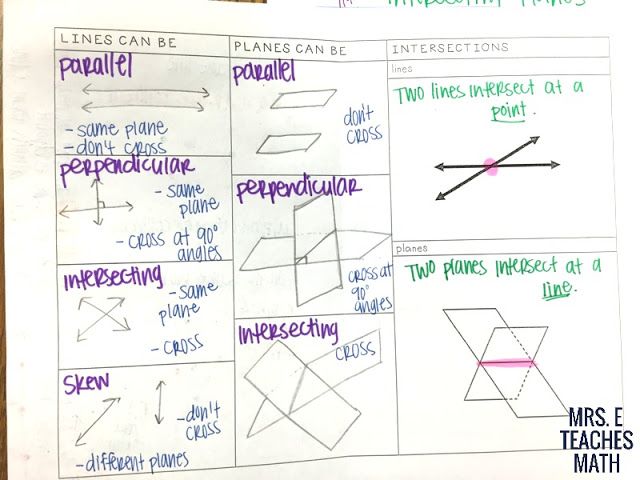 Intersecting Planes
LINES CAN BE
parallel
- same plane
- don't cross
perpendicular
- same
plane
- cross at 90°
angles
Intersecting
- same
plane
- cross
Skew
- don't
cross
- different planes
PLANES CAN BE
parallel
don't
cross
perpendicular
cross at
90°
angles
Intersecting
cross
INTERSECTIONS
lines
Two lines intersect at a
point.
planes
Two planes intersect at a
line.
MRS. E
TEACHES
MATH